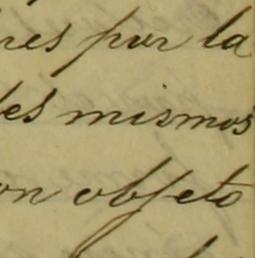 res por la
des mismos
on objeto